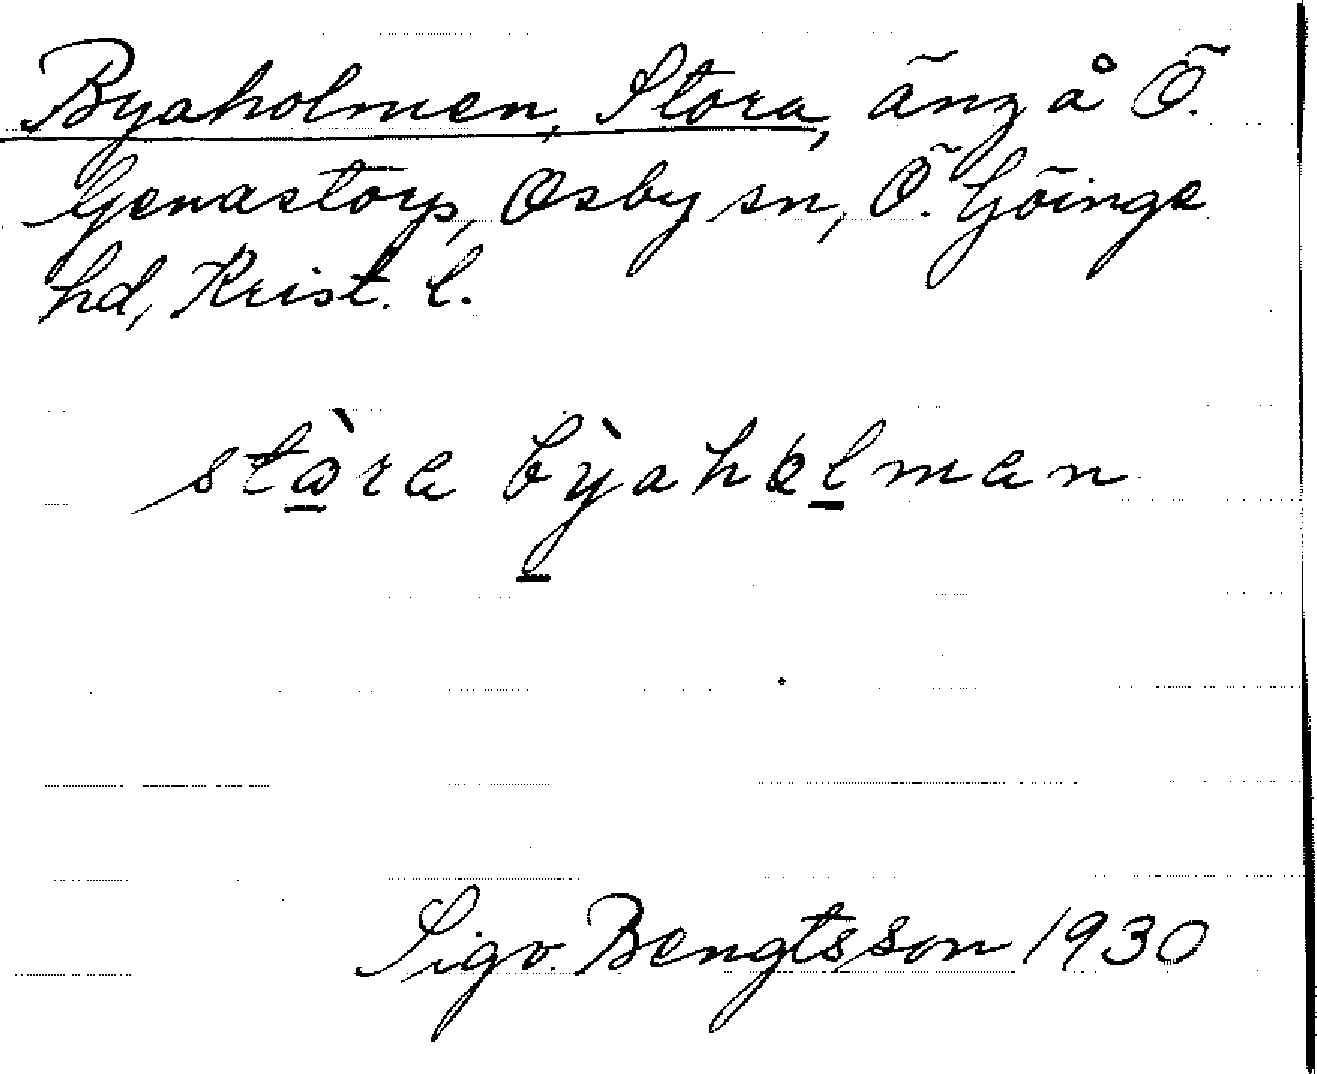 Byaholmen, Stora, äng å Ö.
Genastorp, Osby sn, Ö. Göinge
hd, Krist. l.
stàra bỳahelman
Sigv. Bengtsson 1930